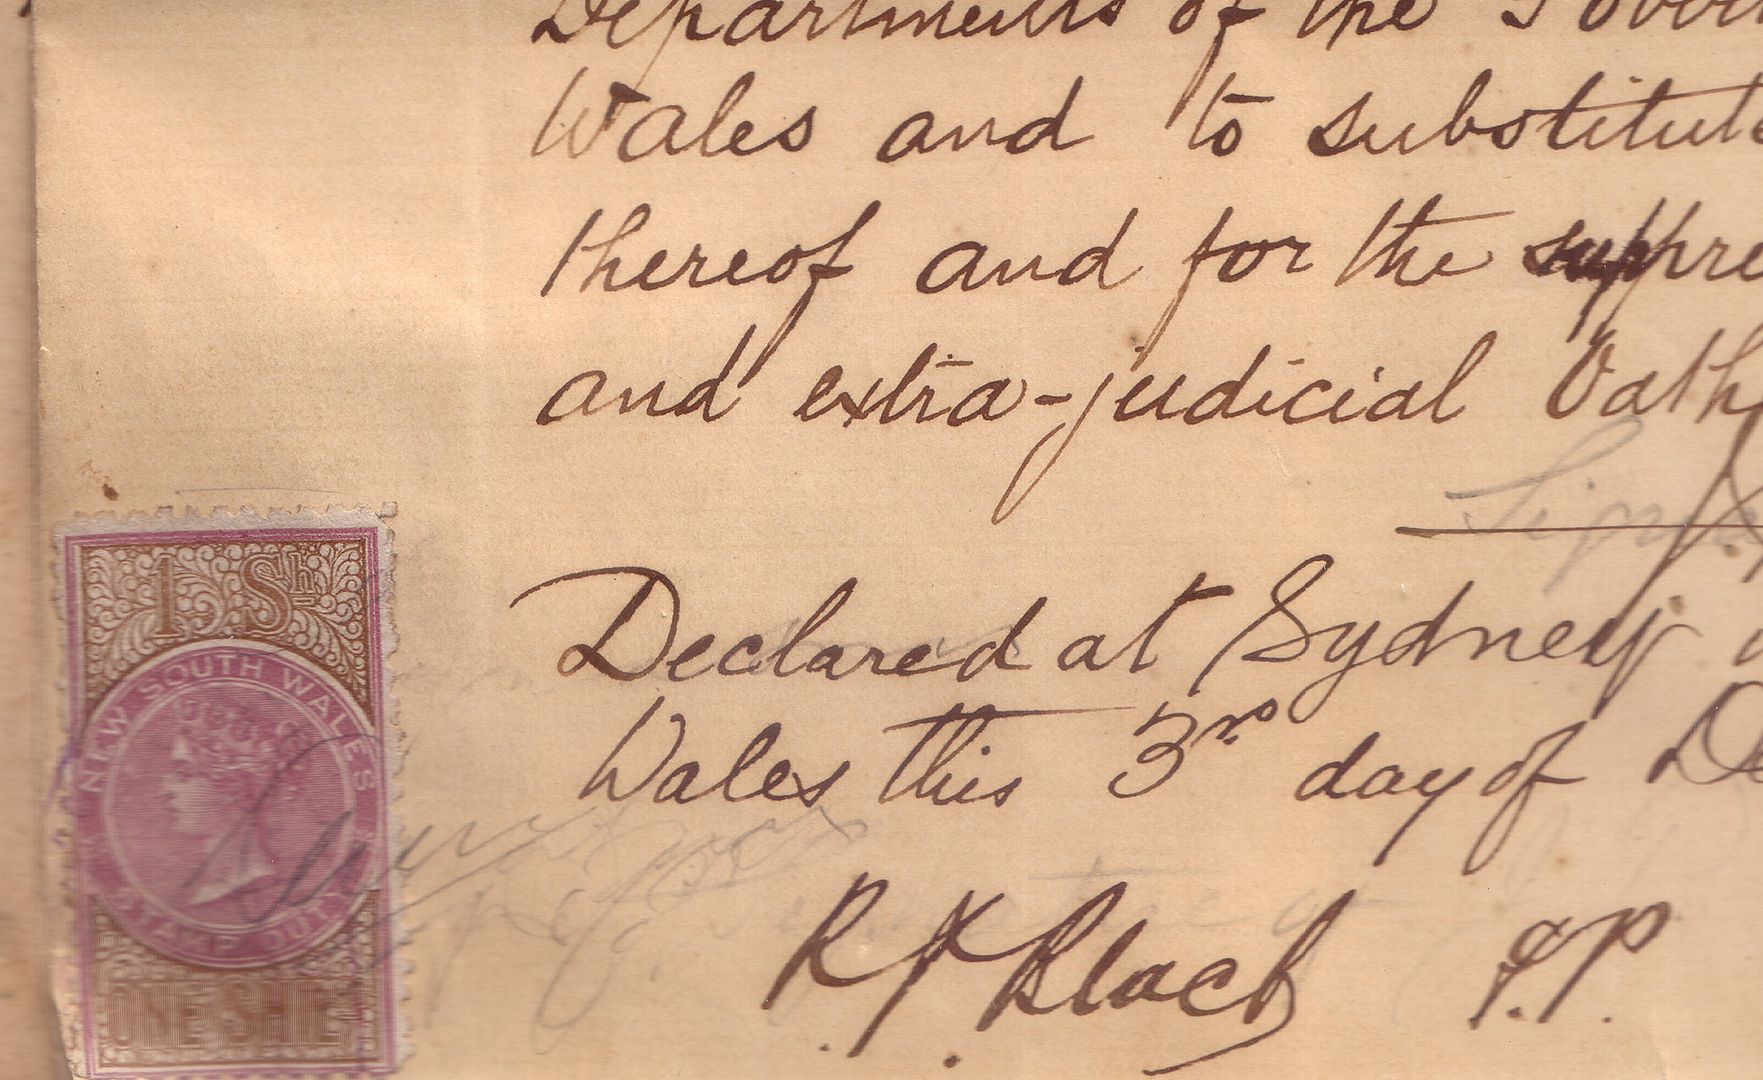 Departments of the Gover
Wales and to substitut
thereof and for the suppre
and extra-judicial Oath
Declared at Sydney
Wales this 3rd day of De
R. Black J.P.
1 Sh
NEW SOUTH WALES
STAMP DUTY
ONE SHIL